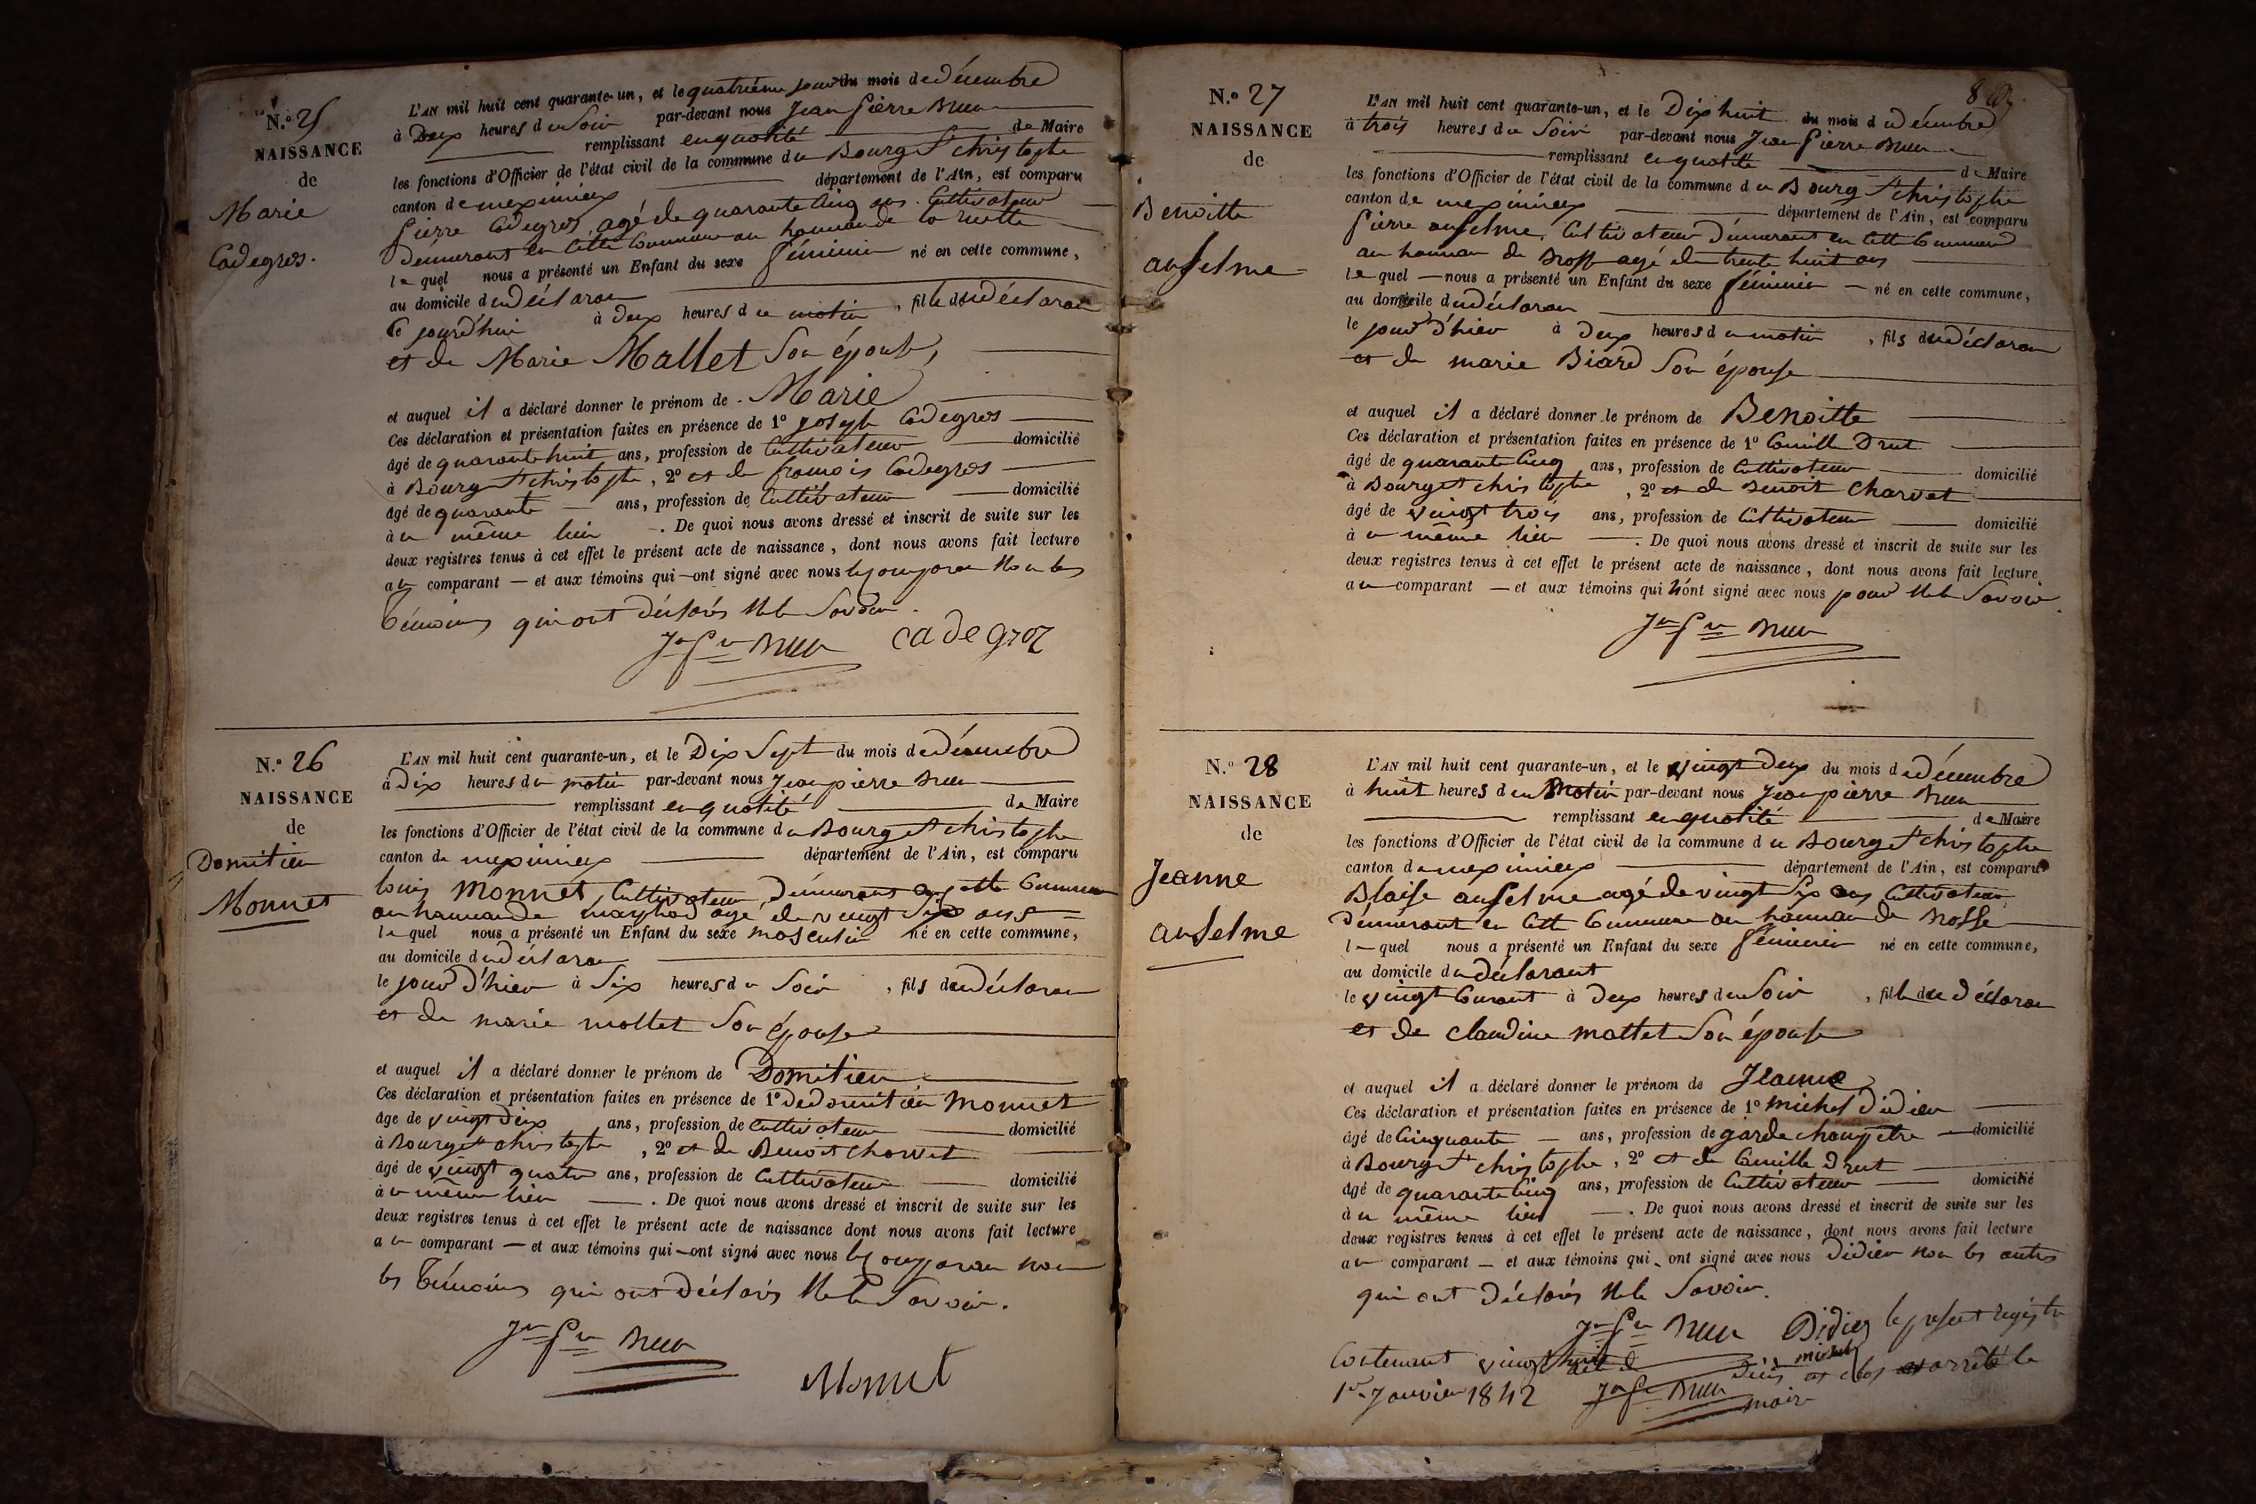 N.º 25
NAISSANCE
de
Marie
Cadegros.
L'AN mil huit cent quarante-un, et le quatrième jour du mois de décembre
à Deux heures du Soir par-devant nous Jean pierre Brun
remplissant en qualité de Maire
les fonctions d'Officier de l'état civil de la commune de Bourg St christophe
canton de meximieux département de l'Ain, est comparu
pierre Cadegros, agé de quarante Cinq ans. Cultivateur
Demeurant en Cette Commune au hameau de la
le quel nous a présenté un Enfant du sexe féminin né en cette commune,
au domicile du déclaran
ce jourd'hui à deux heures du matin, fille du déclaran
et de Marie Mallet Son épouse,
et auquel il a déclaré donner le prénom de. Marie
Ces déclaration et présentation faites en présence de 1º joseph Cadegros
âgé de quarante huit ans, profession de Cultivateur domicilié
à Bourg St christophe, 2º et de francois Cadegros
âgé de quarante ans, profession de Cultivateur domicilié
à u même lieu. De quoi nous avons dressé et inscrit de suite sur les
deux registres tenus à cet effet le présent acte de naissance, dont nous avons fait lecture
au comparant — et aux témoins qui — ont signé avec nous le comparan Non les
témoins qui ont déclarés Ne le Savoir.
Jn Pre Brun cadegroz
N.º 26
NAISSANCE
de
Domitien
Monnet
L'AN mil huit cent quarante-un, et le Dix Sept du mois de décembre
à Dix heures du matin par-devant nous Jean pierre Brun
remplissant en qualité de Maire
les fonctions d'Officier de l'état civil de la commune de Bourg St christophe
canton de meximieux département de l'Ain, est comparu
louis Monnet, Cultivateur, Demeurant en Cette Commune
au hameau de agé de vingt ans
le quel nous a présenté un Enfant du sexe masculin né en cette commune,
au domicile du déclaran
le jour d'hier à Six heures du Soir, fils du déclaran
et de marie mollet Son épouse
et auquel il a déclaré donner le prénom de Domitien
Ces déclaration et présentation faites en présence de 1º de domitien Monnet
âgé de vingt Deux ans, profession de Cultivateur domicilié
à Bourg St christophe, 2º et de Benoit Charvet
âgé de vingt quatre ans, profession de Cultivateur domicilié
à u même lieu. De quoi nous avons dressé et inscrit de suite sur les
deux registres tenus à cet effet le présent acte de naissance dont nous avons fait lecture
au comparant — et aux témoins qui — ont signé avec nous le comparan non
les témoins qui ont déclarés Ne le Savoir.
Jn Pre Brun
Monnet
8
N.º 27
NAISSANCE
de
Benoitte
anselme
L'AN mil huit cent quarante-un, et le Dix huit du mois de décembre
à trois heures du Soir par-devant nous Jean pierre Brun
remplissant en qualité de Maire
les fonctions d'Officier de l'état civil de la commune de Bourg St christophe
canton de meximieux département de l'Ain, est comparu
pierre anselme, Cultivateur Demeurant en Cette Commune
au hameau de Brosse agé de trente huit ans
le quel — nous a présenté un Enfant du sexe féminin — né en cette commune,
au domicile du déclaran
le jour d'hier à Deux heures du matin, fils du déclaran
et de marie Biard Son épouse
et auquel il a déclaré donner le prénom de Benoitte
Ces déclaration et présentation faites en présence de 1º Camille Drut
âgé de quarante Cinq ans, profession de Cultivateur domicilié
à Bourg St christophe, 2º et de Benoit Charvet
âgé de vingt trois ans, profession de Cultivateur domicilié
à u même lieu. De quoi nous avons dressé et inscrit de suite sur les
deux registres tenus à cet effet le présent acte de naissance, dont nous avons fait lecture
au comparant — et aux témoins qui n'ont signé avec nous pour Ne le Savoir.
Jn Pre Brun
N.º 28
NAISSANCE
de
Jeanne
anselme
L'AN mil huit cent quarante-un, et le vingt Deux du mois de décembre
à huit heures du Matin par-devant nous Jean pierre Brun
remplissant en qualité de Maire
les fonctions d'Officier de l'état civil de la commune de Bourg St christophe
canton de meximieux département de l'Ain, est comparu
Blaise anselme agé de vingt Six ans Cultivateur
Demeurant en Cette Commune au hameau de Brosse
le quel nous a présenté un Enfant du sexe féminin né en cette commune,
au domicile du déclarant
le vingt Courant à Deux heures du Soir, fille du déclaran
et de claudine mallet Son épouse
et auquel il a déclaré donner le prénom de Jeanne
Ces déclaration et présentation faites en présence de 1º michel Didier
âgé de Cinquante — ans, profession de garde champêtre domicilié
à Bourg St christophe, 2º et de Camille Drut
âgé de quarante Cinq ans, profession de Cultivateur domicilié
à u même lieu. De quoi nous avons dressé et inscrit de suite sur les
deux registres tenus à cet effet le présent acte de naissance, dont nous avons fait lecture
au comparant — et aux témoins qui ont signé avec nous Didier non les autres
qui ont déclarés Ne le Savoir.
Jn Pre Brun Didier michel le présent registre
Contenant vingt huit et clos et arrêté le
1er Janvier 1842 Jn Pre Brun maire